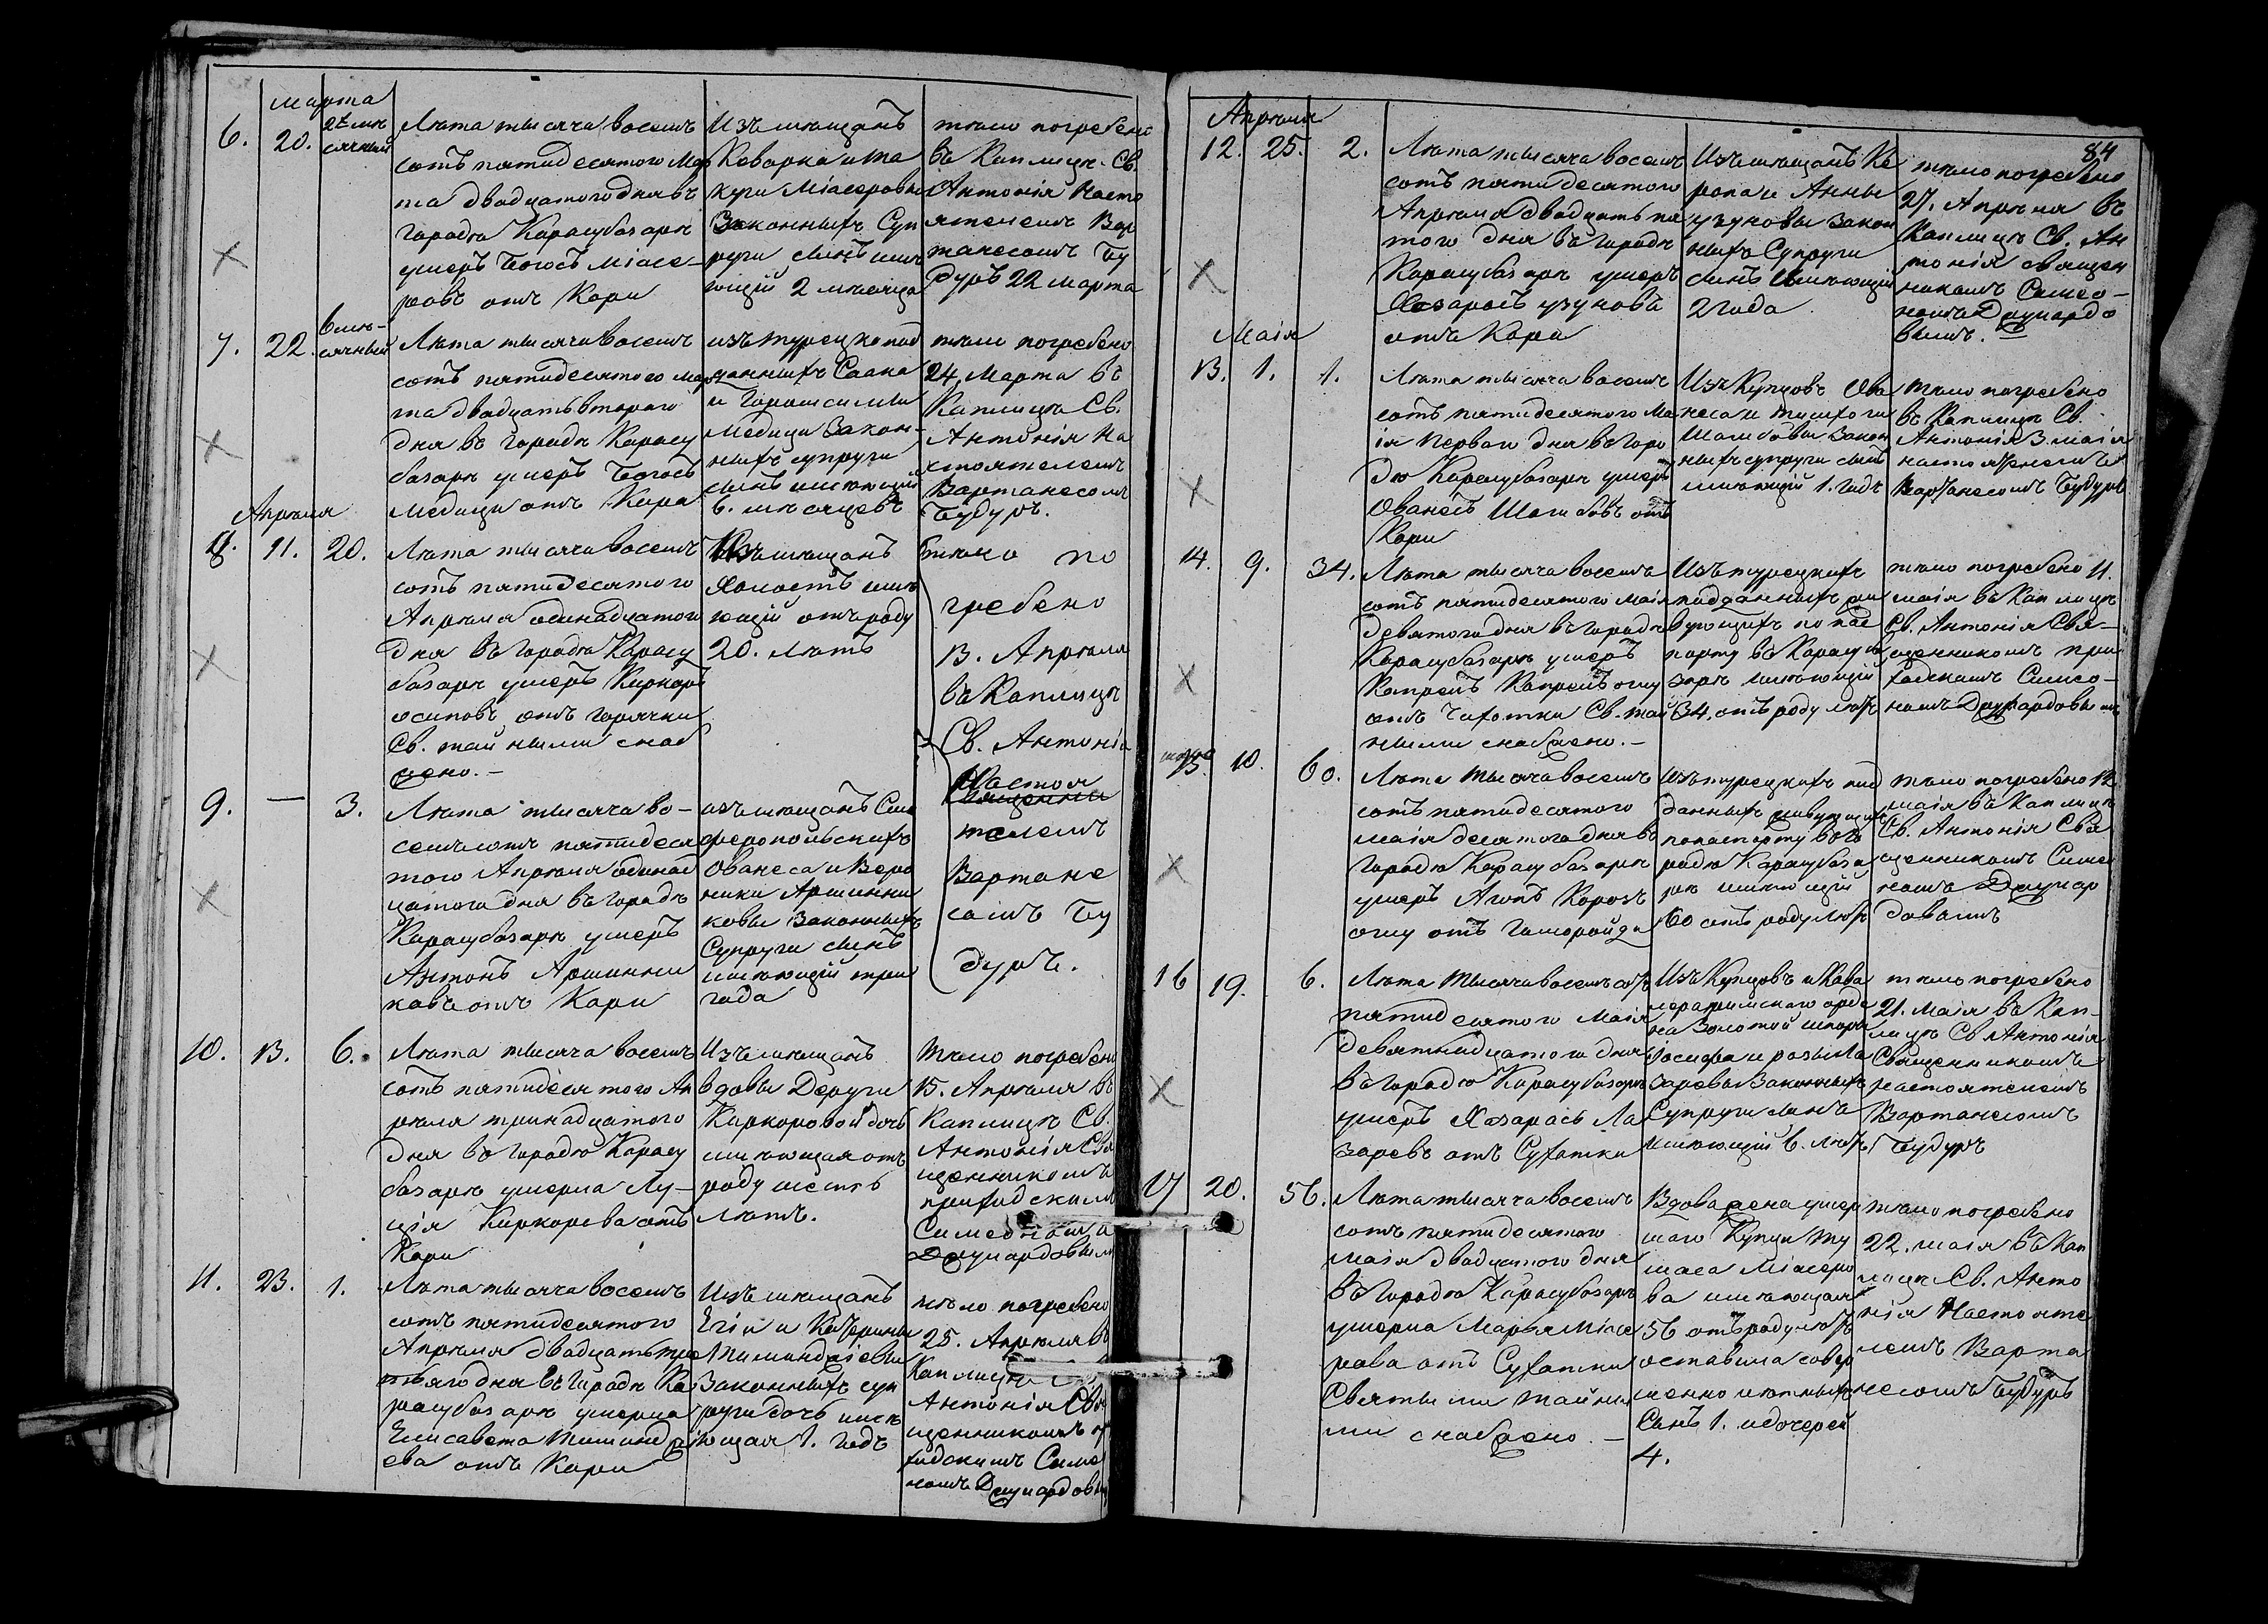 марта
6. 20. 2х мѣ
сячный
Лѣта тысяча восемь
сотъ пятидесятого Мар
та двадцатого дня въ
городѣ Карасубазарѣ
умеръ Богосъ Міасе-
ровъ отъ Кори
Изъ мѣщанъ
Кеворка и Та
куги Міасеровы
Законныхъ Суп
руги сынъ имѣ
ющій 2 мѣсяца
тѣло погребено
въ Каплицѣ Св.
Антонія Насто
ятелемъ Вар
танесомъ Бу
дуръ 22 марта
7. 22. 6 мѣ-
сячный
Лѣта тысяча восемь
сотъ пятидесятого Мар
та двадцать второго
дня въ городѣ Карасу
базарѣ умеръ Богосъ
Медици отъ Кора
изъ турецкопод
данныхъ Саака
и
Медици Закон-
ныхъ супруги
сынъ имѣющій
6. мѣсяцевъ
тѣло погребено
24 Марта въ
Каплицѣ Св.
Антонія На
стоятелемъ
Вартанесомъ
Будуръ.
Апрѣля
8. 11. 20.
Лѣта тысяча восемь
сотъ пятидесятого
Апрѣля одинадцатого
дня въ городѣ Карасу
базарѣ умеръ Киркоръ
осиповъ отъ горячки
Св. тайными снаб
жено.-
Изъ мѣщанъ
Холостъ имѣ
ющій отъ роду
20. лѣтъ
тѣло по
гребено
13. Апрѣля
въ Каплицѣ
Св. Антонія
Настоя
телемъ
Вартане
сомъ Бу
дуръ.
9. — 3.
Лѣта тысяча во-
семьсотъ пятидеся
того Апрѣля одинад
цатого дня въ городѣ
Карасубазарѣ умеръ
Антонъ Аршинни
ковъ отъ Кори
изъ мѣщанъ Сим
феропольскихъ
Ованеса и Веро
ники Аршинни
ковы Законныхъ
Супруги сынъ
имѣющій три
года
10. 13. 6.
Лѣта тысяча восемь
сотъ пятидесятого Ап
рѣля тринадцатого
дня въ городѣ Карасу
базарѣ умерла Лу-
ція Киркорева отъ
Кори
Изъ мѣщанъ
вдовы Деруги
Киркоровой дочь
имѣющая отъ
роду шесть
лѣтъ.
Тѣло погребено
15. Апрѣля въ
Каплицѣ Св.
Антонія Свя
щенникомъ
приходскимъ
Симеономъ
Джунардовымъ
11. 23. 1.
Лѣта тысяча восемь
сотъ пятидесятого
Апрѣля двадцать тре
тьяго дня въ городѣ Ка
расубазарѣ умерла
Елисавета
ева отъ Кори
Изъ мѣщанъ
Егіи и Катерины
Законныхъ суп
руги дочь имѣ
ющая 1. годъ
тѣло погребено
25. Апрѣля въ
Каплицѣ
Антонія Свя
щенникомъ пр
ходскимъ Симе
номъ Джунардовым
84
Апрѣля
12. 25. 2.
Лѣта тысяча восемь
сотъ пятидесятого
Апрѣля двадцать пя
того дня въ городѣ
Карасубазарѣ умеръ
Хазаросъ узуновъ
отъ Кори
Изъ мѣщанъ Ке
ропа и Анны
узуновы Закон
ныхъ Супруги
сынъ имѣющій
2 года
тѣло погребено
27. Апрѣля въ
Каплицѣ Св. Ан
тонія священ
никомъ Симео-
номъ Джунардо
вымъ.
Маія
13. 1. 1.
Лѣта тысяча восемь
сотъ пятидесятого Ма
ія Перваго дня въ горо
дѣ Карасубазарѣ умеръ
Ованесъ Шагибовъ отъ
Кори
Изъ Купцовъ Ова
неса и
Шагибовы Закон
ныхъ супруги сынъ
имѣющій 1. годъ
тѣло погребено
въ Каплицѣ Св.
Антонія 3. маія
настоятелемъ
Вартанесомъ Будуръ
14. 9. 34.
Лѣта тысяча восемь
сотъ пятидесятого маія
девятого дня въ городѣ
Карасубазарѣ умеръ
Капрелъ Капрелъ оглу
отъ Чахотки Св. тай
ными снабжено.-
Изъ турецкихъ
подданныхъ жи
вующихъ по пас
порту въ Карасуба
зарѣ имѣющій
34. отъ роду лѣтъ
тѣло погребено 11.
маія въ Каплицѣ
Св. Антонія Свя-
щенникомъ при
ходскимъ Симео-
номъ Джунардовымъ
15. 10. 60.
Лѣта тысяча восемь
сотъ пятидесятого
маія десятого дня въ
городѣ Карасубазарѣ
умеръ Агопъ Корозъ
оглу отъ Гаморойда
Изъ турецкихъ под
данныхъ живущихъ
по паспорту въ го
родѣ Карасубаза
рѣ имѣющій
60 отъ роду лѣтъ
тѣло погребено 12
маія въ Каплицѣ
Св. Антонія Свя
щенникомъ Симео
номъ Джунар
довымъ
16 19. 6.
Лѣта тысяча восемь сотъ
пятидесятого Маія
девятнадцатого дня
въ городѣ Карасубазарѣ
умеръ Хазарасъ Ла
заревъ отъ Сухотки
Изъ Купцовъ и Кава
лера римскаго орде
на Золотой шпоры
іосифа и розы Ла
заревы Законныхъ
Супруги сынъ
имѣющій 6. лѣтъ
тѣло погребено
21. Маія въ Кап-
лицѣ Св Антонія
Священникомъ
настоятелемъ
Вартанесомъ
Будуръ
17 20. 56.
Лѣта тысяча восемь
сотъ пятидесятого
маія двадцатого дня
въ городѣ Карасубазарѣ
умерла Марья Міасе
рова отъ Сухотки
Святыми тайны
ми снабжено. -
Вдова жена умер
шаго Купца Ту
маса Міасеро
ва имѣющая
56 отъ роду лѣтъ
оставила совер
шенно лѣтныхъ
Сынъ 1. и дочерей
4.
тѣло погребено
22. маія въ Кап
лицѣ Св. Анто
нія Настояте
лемъ Варта
несомъ Будуръ